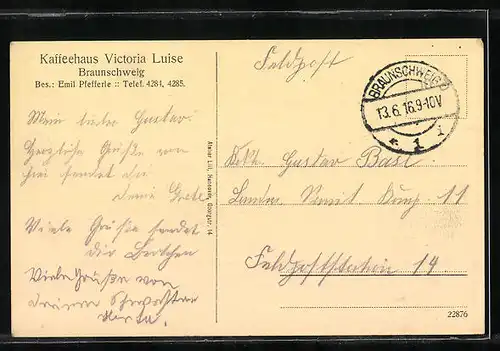 Kaffeehaus Victoria Luise
Braunschweig
Bes.: Emil Pfefferle :: Telef. 4284, 4285.
Feldpost
BRAUNSCHWEIG
13.6.16.9-10V
* 1 i
Mein lieber Gustav.
Herzliche Grüße von
hier sendet dir
deine Grete
Viele Grüße sendet
dir
Viele Grüße von
deiner
Herta.
Gustav Basl
Komp. 11
Feldpoststation 14.
22876